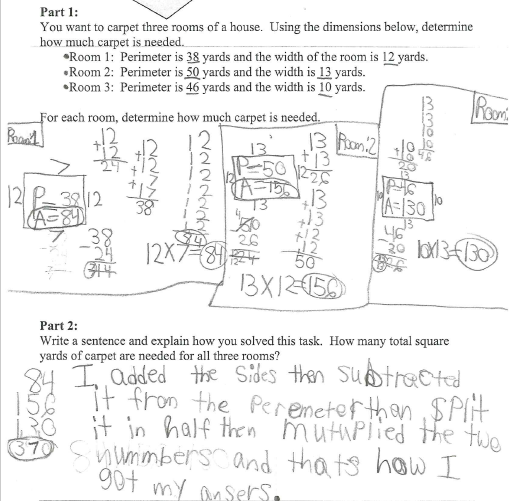 Part 1:
You want to carpet three rooms of a house. Using the dimensions below, determine
how much carpet is needed.
•Room 1: Perimeter is 38 yards and the width of the room is 12 yards.
•Room 2: Perimeter is 50 yards and the width is 13 yards.
•Room 3: Perimeter is 46 yards and the width is 10 yards.
For each room, determine how much carpet is needed.
Room1
7
12 P=38 12
A=84
7
+12
+12
24
+12
+12
+7
+7
38
-38
24
14
12
12
12
12
12
12
12
84
12X7=84
Room:2
13
P=50
A=156
13
12
13
+13
26
+13
+13
+12
+12
50
50
26
24
13X12=156
Room:
13
13
10
+10
46
10
+10
20
P=46
A=130
10
13
46
-20
26
10X13=130
Part 2:
Write a sentence and explain how you solved this task. How many total square
yards of carpet are needed for all three rooms?
84 I added the sides then subtracted
156 it from the peremeter then split
130 it in half then mutuplied the two
370 nummbers and thats how I
got my ansers.